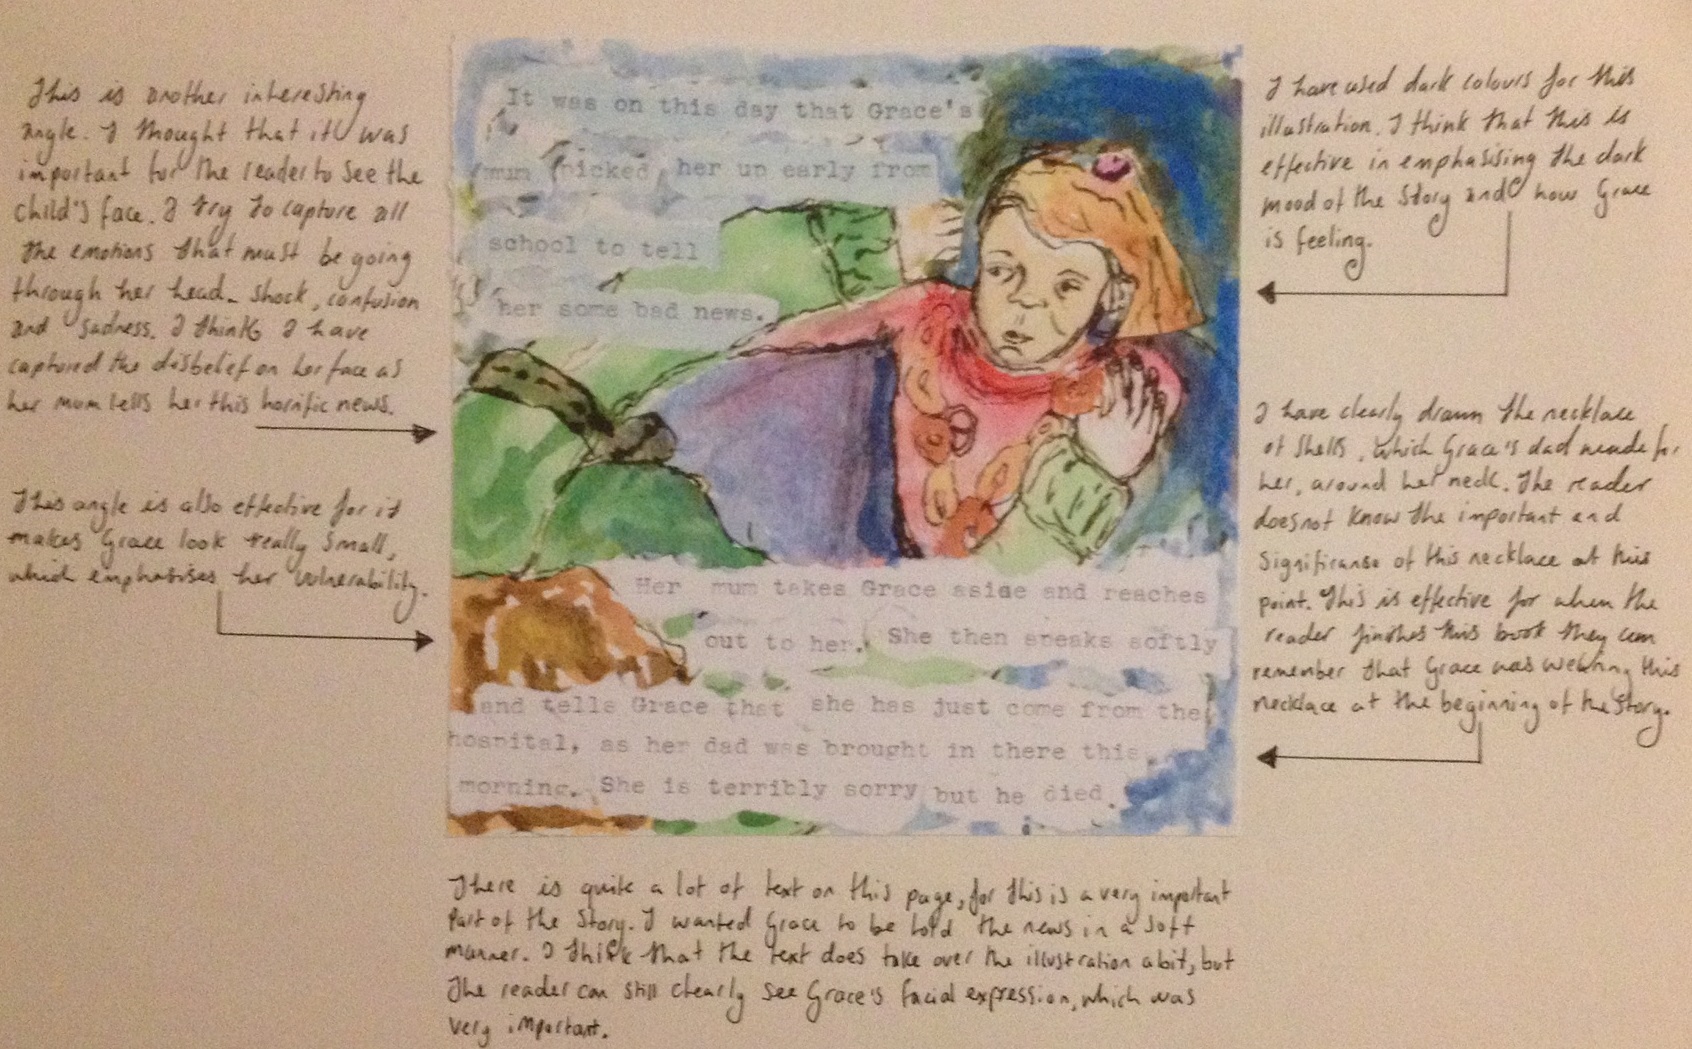 This is another interesting
angle. I thought that it was
important for the reader to see the
child's face. I try to capture all
the emotions that must be going
through her head. Shock, confusion
and sadness. I think I have
captured the disbelief on her face as
her mum tells her this horrific news.
This angle is also effective for it
makes Grace look really small,
which emphasises her vulnerability.
It was on this day that Grace's
mum picked her up early from
school to tell
her some bad news.
Her mum takes Grace aside and reaches
out to her. She then speaks softly
and tells Grace that she has just come from the
hospital, as her dad was brought in there this
morning. She is terribly sorry but he died.
I have used dark colours for this
illustration. I think that this is
effective in emphasising the dark
mood of the story and how Grace
is feeling.
I have clearly drawn the necklace
of shells, which Grace's dad made for
her, around her neck. The reader
does not know the important and
significanse of this necklace at this
point. This is effective for when the
reader finishes this book they can
remember that Grace was wearing this
necklace at the beginning of the story.
There is quite a lot of text on this page, for this is a very important
part of the story. I wanted Grace to be told the news in a soft
manner. I think that the text does take over the illustration a bit, but
the reader can still clearly see Grace's facial expression, which was
very important.